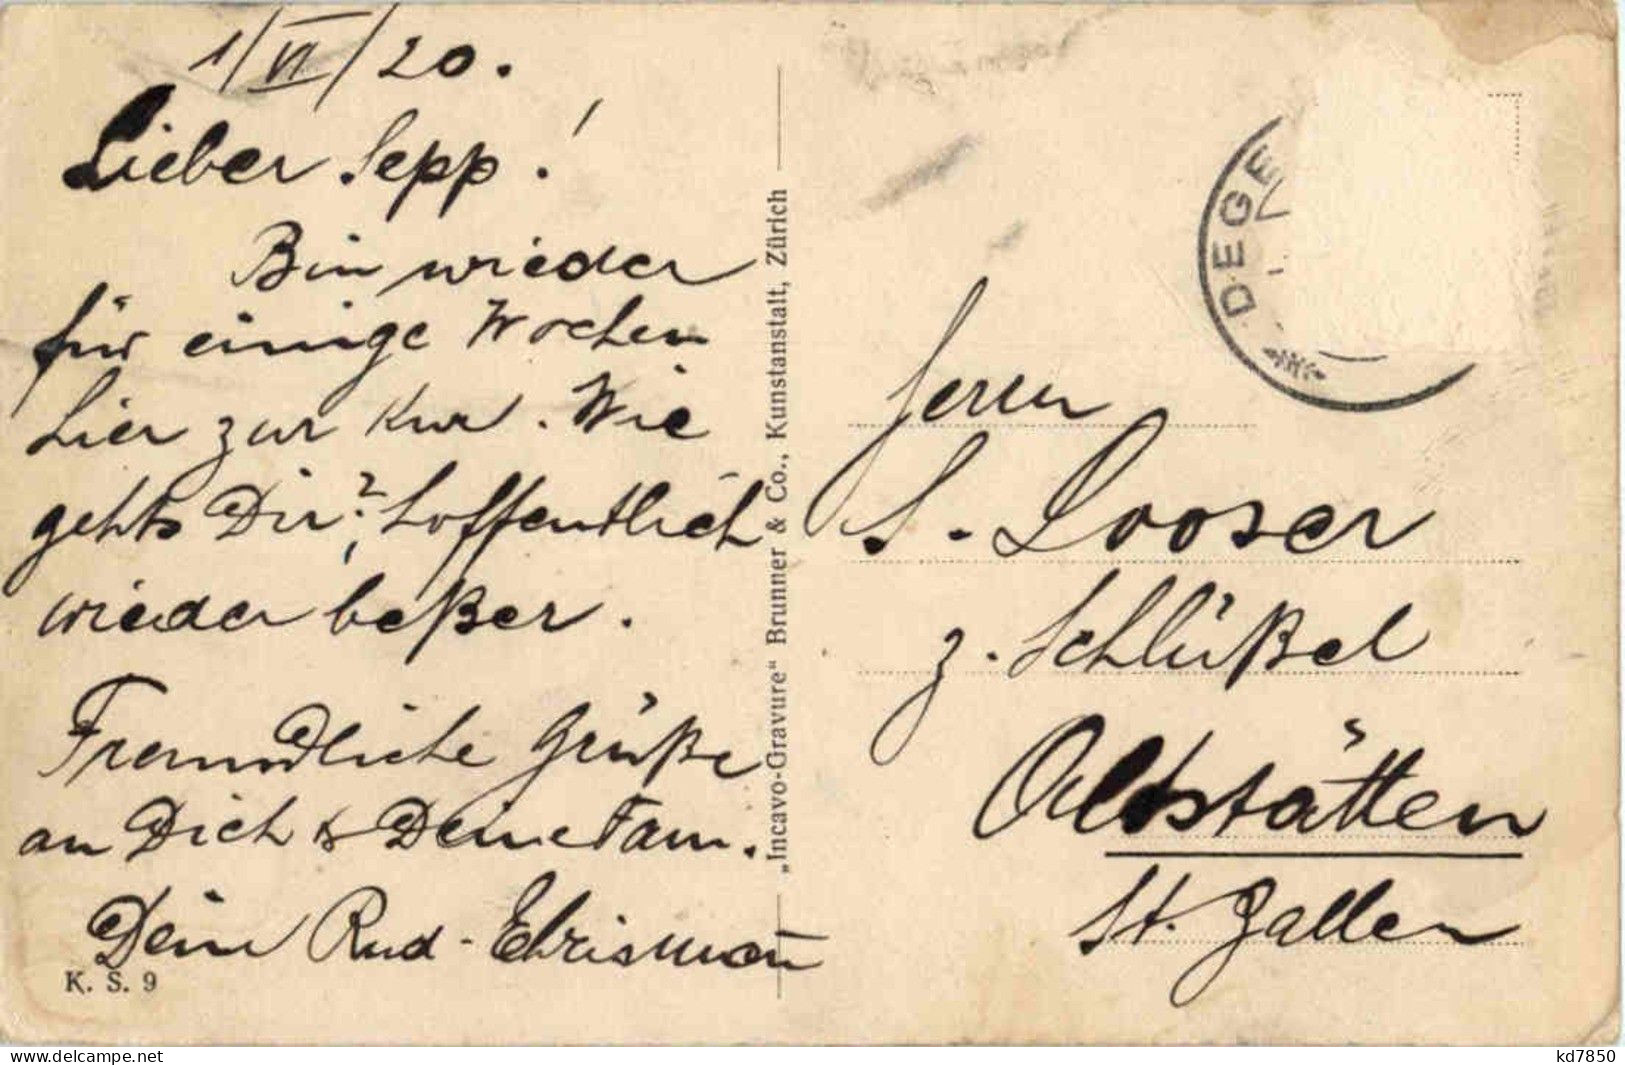 1/VI/20.
Lieber Sepp!
Bin wieder
für einige Wochen
hier zur Kur. Wie
gehts Dir? hoffentlich
wieder beßer.
Freundliche Grüße
an Dich & Deine Fam.
Dein Rud. Ehrismann
K. S. 9
„Incavo-Gravure“ Brunner & Co., Kunstanstalt, Zürich
DEGE
Herrn
S. Looser
z. Schlüßel
Altstätten
St. Gallen
kd7850
https://www.delcampe.net